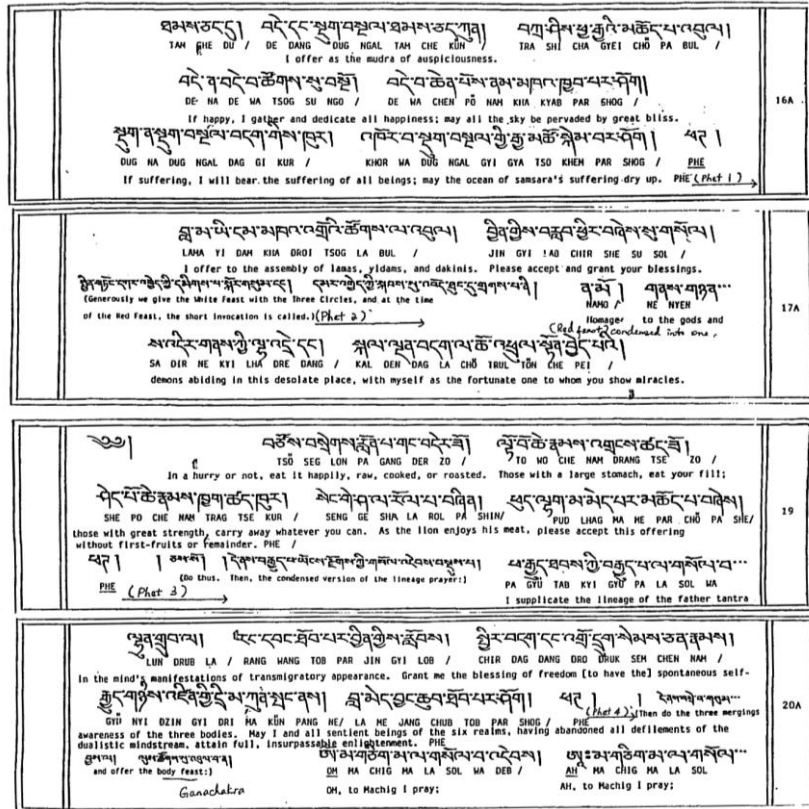 ཐམས་ཅད་དུ། བདེ་དང་སྡུག་བསྔལ་ཐམས་ཅད་ཀུན། བཀྲ་ཤིས་ཕྱག་རྒྱའི་མཆོད་པ་འབུལ།
TAM CHE DU / DE DANG DUG NGAL TAM CHE KÜN / TRA SHI CHA GYEI CHÖ PA BUL /
I offer as the mudra of auspiciousness.
བདེ་ན་བདེ་བ་ཚོགས་སུ་བསྔོ། བདེ་བ་ཆེན་པོས་ནམ་མཁའ་ཁྱབ་པར་ཤོག།
DE NA DE WA TSOG SU NGO / DE WA CHEN PÖ NAM KHA KYAB PAR SHOG /
16A
If happy, I gather and dedicate all happiness; may all the sky be pervaded by great bliss.
སྡུག་ན་སྡུག་བསྔལ་བདག་གིས་ཁུར། འཁོར་བ་སྡུག་བསྔལ་གྱི་རྒྱ་མཚོ་སྐེམ་པར་ཤོག། ཕཊ །
DUG NA DUG NGAL DAG GI KUR / KHOR WA DUG NGAL GYI GYA TSO KHEM PAR SHOG / PHE
If suffering, I will bear the suffering of all beings; may the ocean of samsara's suffering dry up. PHE (Phet 1)
བླ་མ་ཡི་དམ་མཁའ་འགྲོའི་ཚོགས་ལ་འབུལ། བྱིན་གྱིས་བརླབ་ཕྱིར་བཞེས་སུ་གསོལ།
LAMA YI DAM KHA DROI TSOG LA BUL / JIN GYI LAO CHIR SHE SU SOL /
I offer to the assembly of lamas, yidams, and dakinis. Please accept and grant your blessings.
ན་མོ། གནས་གཉན་
(Generously we give the White Feast with the Three Circles, and at the time NAMO / NE NYEN
17A
of the Red Feast, the short invocation is called.) (Phet 2) Homage to the gods and
(Red feast) condensed into one,
ས་འདིར་གནས་ཀྱི་ལྷ་འདྲེ་དང། སྐལ་ལྡན་བདག་ལ་ཆོ་འཕྲུལ་སྟོན་བྱེད་པའི།
SA DIR NE KYI LHA DRE DANG / KAL DEN DAG LA CHÖ TRUL TÖN CHE PEI /
demons abiding in this desolate place, with myself as the fortunate one to whom you show miracles.
༄༅། བཙོས་བསྲེགས་རློན་པ་གང་བདེར་ཟོ། ལྟོ་བོ་ཆེ་རྣམས་འགྲངས་ཚད་ཟོ།
TSÖ SEG LON PA GANG DER ZO / TO WO CHE NAM DRANG TSE ZO /
In a hurry or not, eat it happily, raw, cooked, or roasted. Those with a large stomach, eat your fill;
ཤེད་པོ་ཆེ་རྣམས་ཁྲག་ཚད་ཁུར། སེང་གེ་ཤ་ལ་རོལ་པ་བཞིན། ཕུད་ལྷག་མ་མེད་པར་མཆོད་པ་བཞེས།
SHE PO CHE NAM TRAG TSE KUR / SENG GE SHA LA ROL PA SHIN/ PUD LHAG MA ME PAR CHÖ PA SHE/
19
those with great strength, carry away whatever you can. As the lion enjoys his meat, please accept this offering
without first-fruits or remainder. PHE /
ཕཊ །
PHE (Phet 3) (Do thus. Then, the condensed version of the lineage prayer:) PA GYÜ TAB KYI GYÜ PA LA SOL WA
I supplicate the lineage of the father tantra
ལྷུན་གྲུབ་ལ། རང་དབང་ཐོབ་པར་བྱིན་གྱིས་རློབས། སྤྱིར་བདག་དང་འགྲོ་དྲུག་སེམས་ཅན་རྣམས།
LUN DRUB LA / RANG WANG TOB PAR JIN GYI LOB / CHIR DAG DANG DRO DRUK SEM CHEN NAM /
in the mind's manifestations of transmigratory appearance. Grant me the blessing of freedom [to have the] spontaneous self-
རྒྱུད་གཉིས་འཛིན་གྱི་དྲི་མ་ཀུན་སྤང་ནས། བླ་མེད་བྱང་ཆུབ་ཐོབ་པར་ཤོག། ཕཊ །
GYÜ NYI DZIN GYI DRI MA KÜN PANG NE/ LA ME JANG CHUB TOB PAR SHOG / PHE (Phet 4) (Then do the three mergings
20A
awareness of the three bodies. May I and all sentient beings of the six realms, having abandoned all defilements of the
dualistic mindstream, attain full, insurpassable enlightenment. PHE
ཨོཾ་མ་གཅིག་མ་ལ་གསོལ་བ་འདེབས། ཨཱཿམ་གཅིག་མ་ལ་གསོལ་
and offer the body feast:) OM MA CHIG MA LA SOL WA DEB / AH MA CHIG MA LA SOL
Ganachakra OM, to Machig I pray; AH, to Machig I pray;